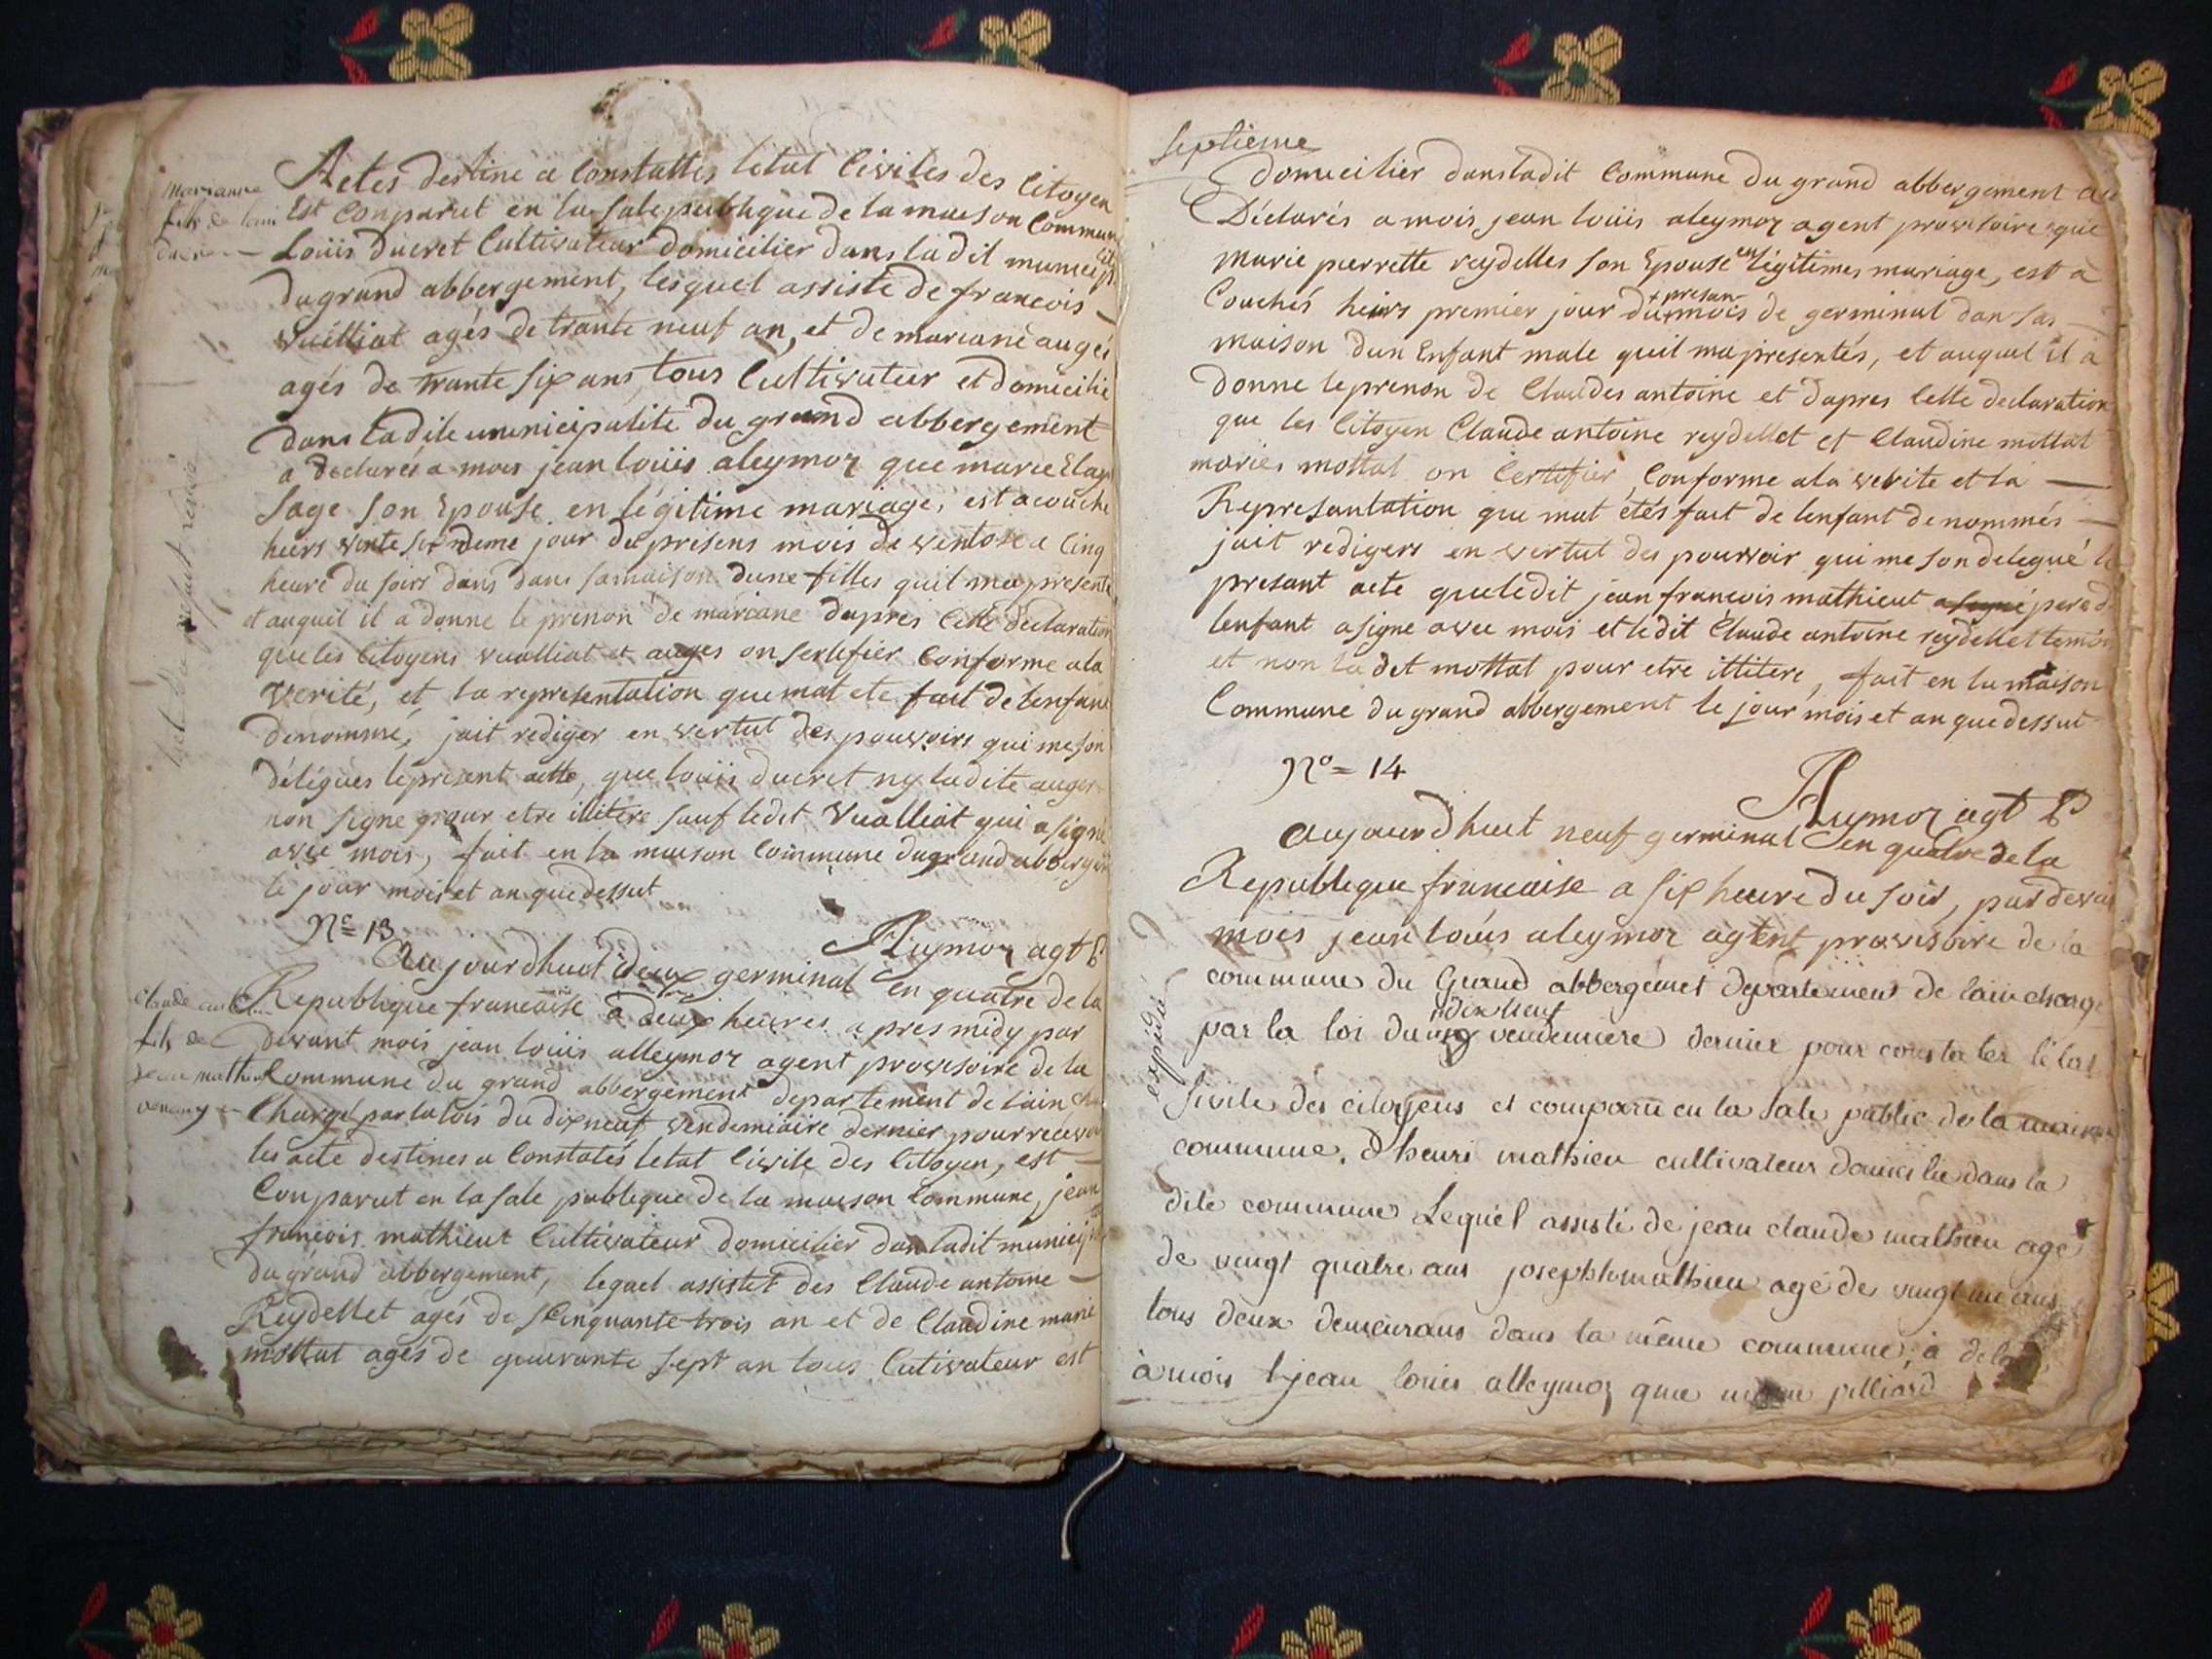 marianne
fils de loui
Actes destine a Constattes letat Civiles des Citoyen
Est Conparut en la Sale publique de la maison Commun
Loüis Ducret Cultivateur domicilier dans ladit municip
Du grand abbergement, lesquel assiste de francois
vuilliat agés de trante neuf an, et de mariane augés
agés de trante six ans, tous Cultivateur et domicilie
Dans ladite municipalite du grand abbergement
a déclarés a mois jean loüis aleymoz que marie
Sage son Epouse en légitime mariage, est acouche
heurs vente jour du presens mois de ventose a Cinq
heure du soirs dans dans samaison dune filles quil ma presente
et auquel il a donne le prenon de mariane dapres Cette declaration
que les Citoyens vualliat et auges on sertifier Conforme ala
verité, et la representation que mat ete fait de lenfant
denommé, jait rediger en vertut des pouvoirs qui me son
délégues le present actte, que loüis ducret ny ladite auges
non signe pour etre illitere sauf ledit Vualliat qui a signé
avec mois, fait en la maison Commune du grand abbergem
le jour mois et an que dessut
Nº= 13
Aleymoz agt P
Aujourdhuit deux germinal en quatre de la
Claude
Republique francaise a deux heures apres midy par
fils de
devant mois jean louis alleymoz agent provisoire de la
jean mathieu
Commune du grand abbergement departement de lain
Chargé par la lois du dixneuf vendemiaire dernier pour recevoir
les acte destines a Constatés letat Civile des Citoyen, est
Conparut en la sale publique de la maison Commune, jean
francois mathieut Cultivateur domicilier dan ladit municip
du grand abbergement, lequel assistet des Claude antoine
Reydellet agés de Cinquante trois an et de Claudine marie
mottat agés de quarante sept an tous Cutivateur est
septieme
domicilier dans ladit Commune du grand abbergement
Déclarés a mois jean loüis aleymoz agent provisoire que
marie pierrette reydelles son Epouse en légitimes mariage, est a
Couchés heirs premier jour du + presan mois de germinal dan sas
maison dun Enfant male quil ma presentés, et auquel il a
donne le prenon de Claudes antoine et dapres Cette declaration
que les Citoyen Claude antoine reydellet et Claudine mottat
maries mottat on Certifier, Conforme ala verite et la
Represantation que mat étés fait de lenfant denommés
jait redigers en vertut des pouvoir qui me son delegué le
presant acte que ledit jean francois mathieut a signé pere d
lenfant a signe avec mois et ledit Claude antoine reydellet temoin
et non la dit mottat pour etre illitere, fait en la maison
Commune du grand abbergement le jour mois et an que dessut
Nº= 14
Aleymoz agt P
Aujourdhuit neuf germinal en quatre de la
Republique francaise a six heure du soir, par devan
mois jean loüis aleymoz agtent provisoire de la
commune du Grand abbergemet departement de lain charge
expédié
par la loi du dix neuf vendemiere dernier pour constater létat
Sivile des citoyens et comparu en la sale public de la maison
commune. Dhenri mathieu cultivateur domicilie dans la
dite commune Lequel assisté de jean claude mathieu agé
de vingt quatre ans joseph mathieu agé de vingt un ans
tous deux demeurans dans la même commune, a
à mois jean louis alleymoz que pilliard